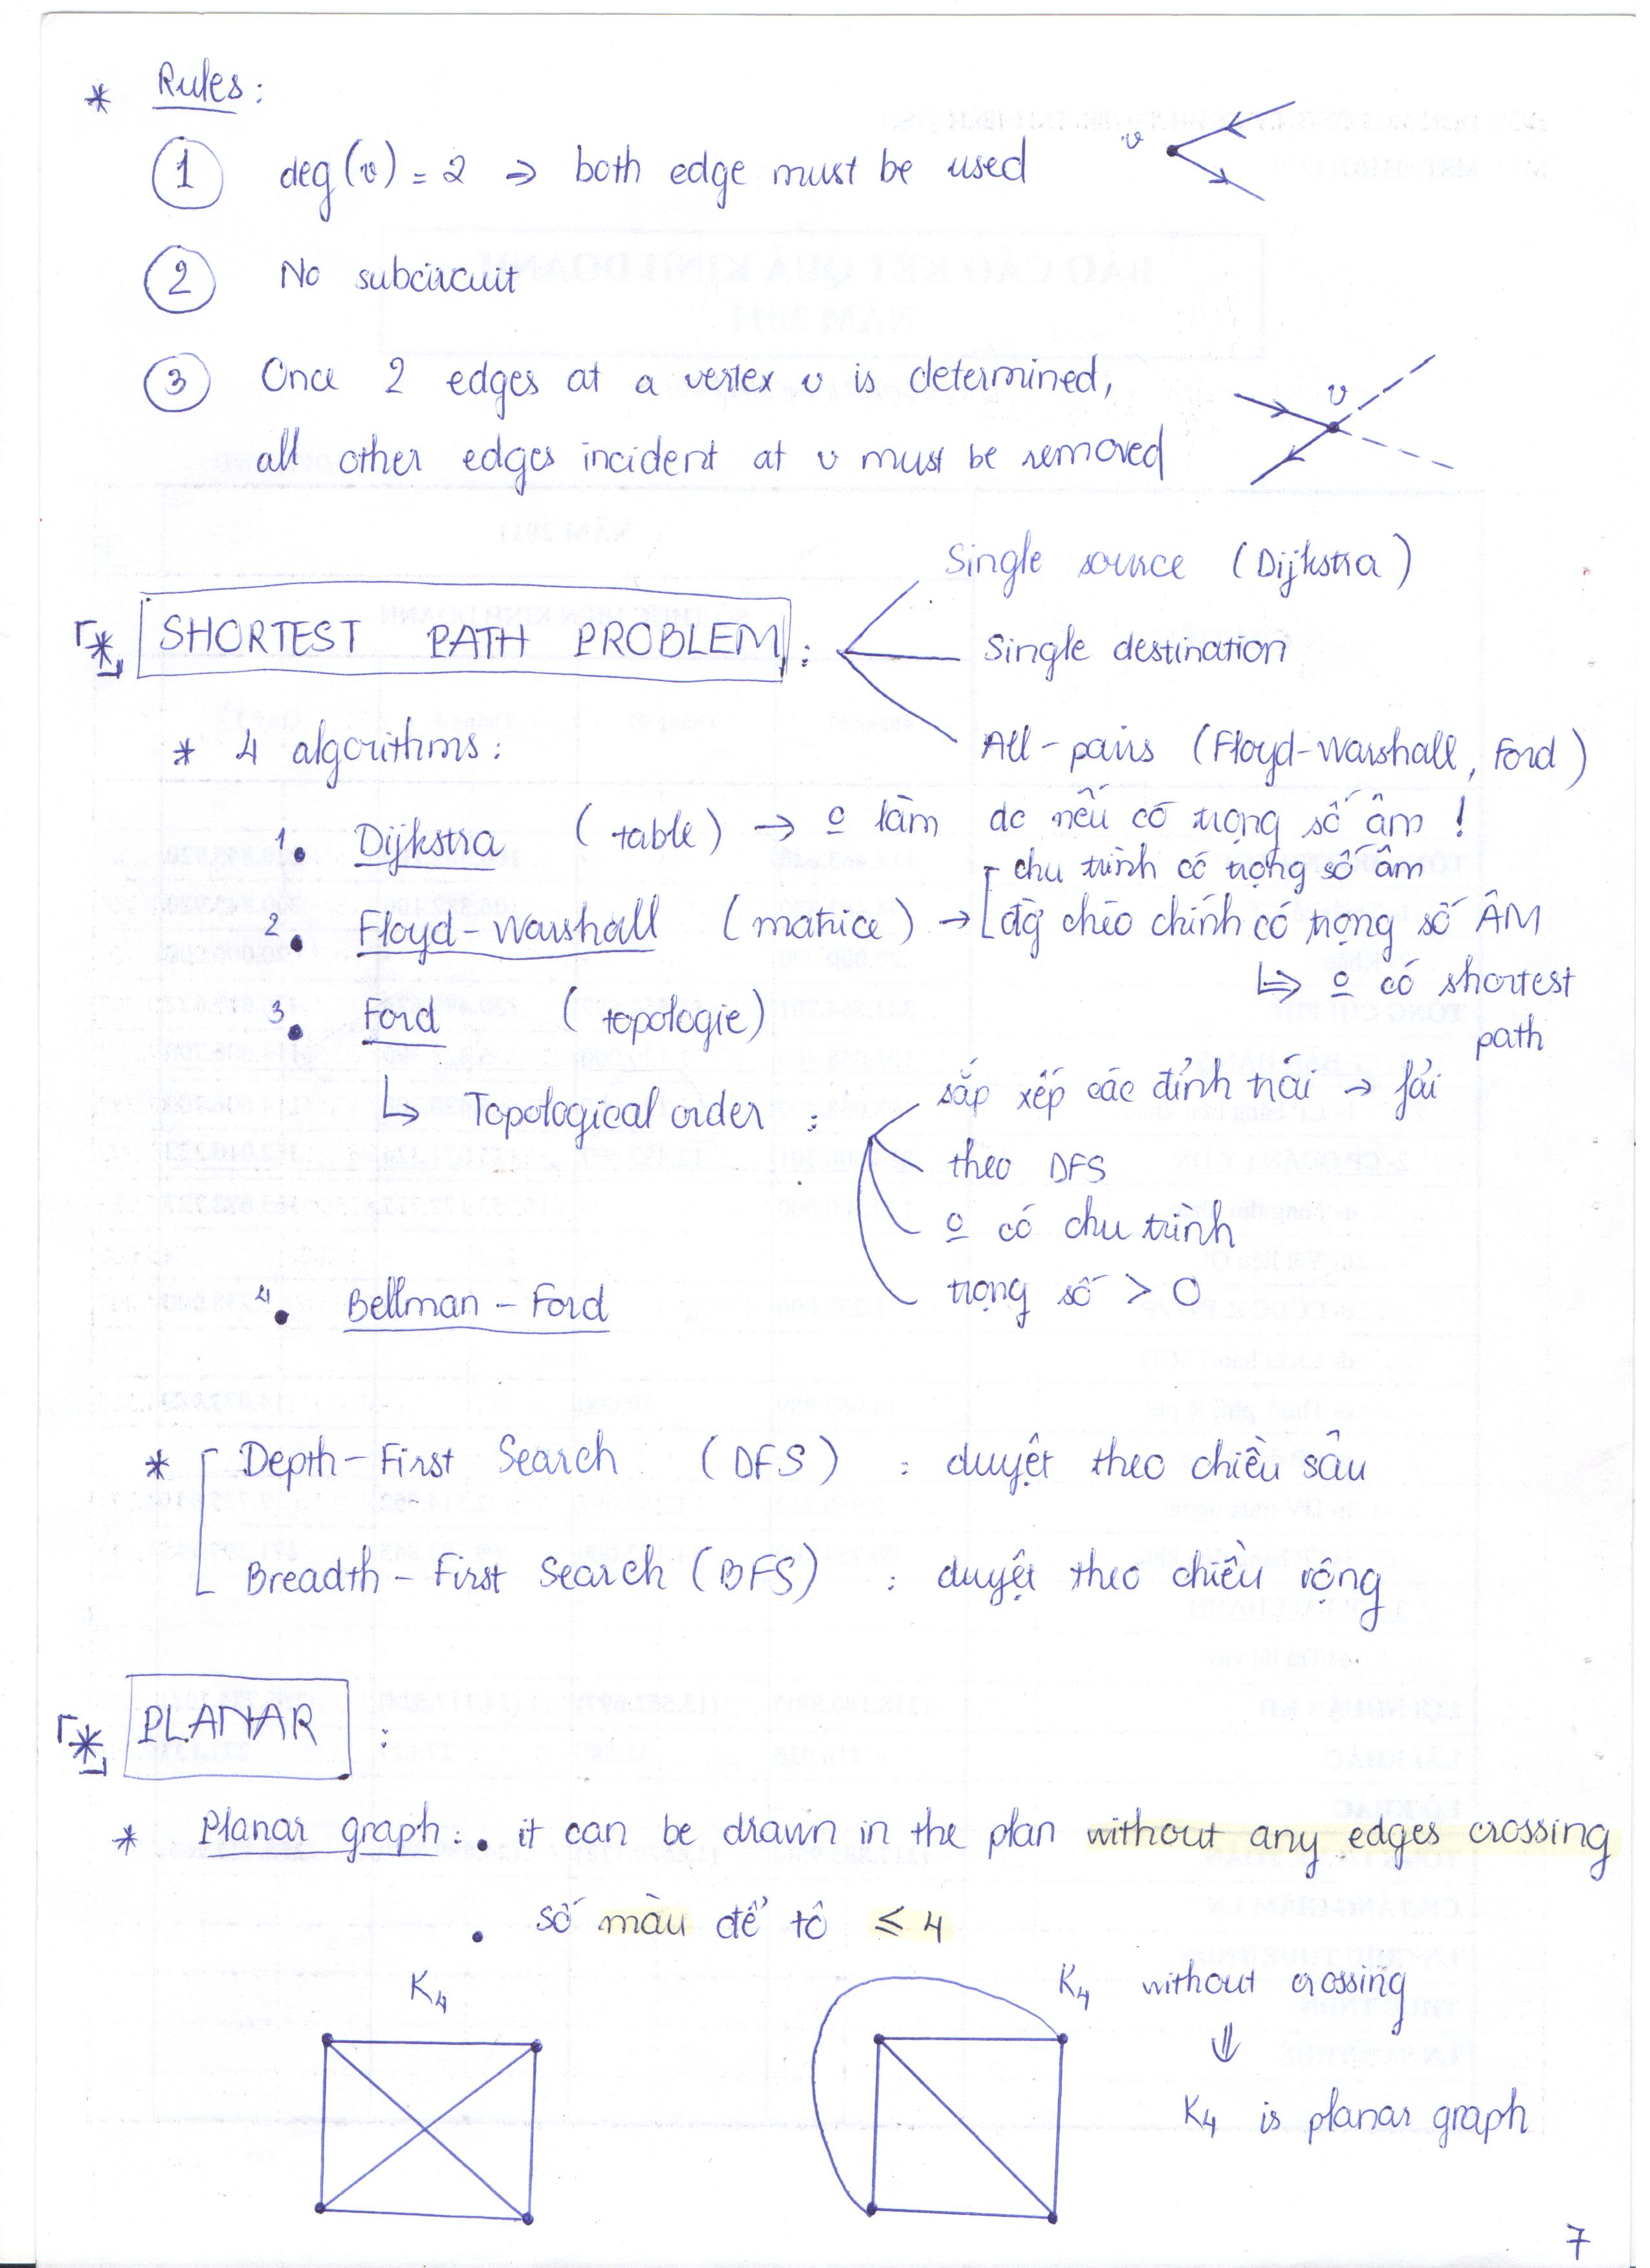 * Rules:
1 deg(v) = 2 => both edge must be used
v
2 No subcircuit
3 Once 2 edges at a vertex v is determined,
all other edges incident at v must be removed
v
* SHORTEST PATH PROBLEM :
Single source (Dijkstra)
Single destination
All-pairs (Floyd-Warshall, Ford)
* 4 algorithms:
1. Dijkstra (table) → o làm dc nếu có trọng số âm !
2. Floyd-Warshall (matrice) →
chu trình có trọng số âm
đg chéo chính có trọng số ÂM
↳ o có shortest
path
3. Ford (topologie)
↳ Topological order :
sắp xếp các đỉnh trái → fải
theo DFS
o có chu trình
trọng số > 0
4. Bellman-Ford
* Depth-First Search (DFS) : duyệt theo chiều sâu
Breadth-First Search (BFS) : duyệt theo chiều rộng
* PLANAR :
* Planar graph: . it can be drawn in the plan without any edges crossing
. số màu để tô ≤ 4
K4
K4 without crossing
⇓
K4 is planar graph
7